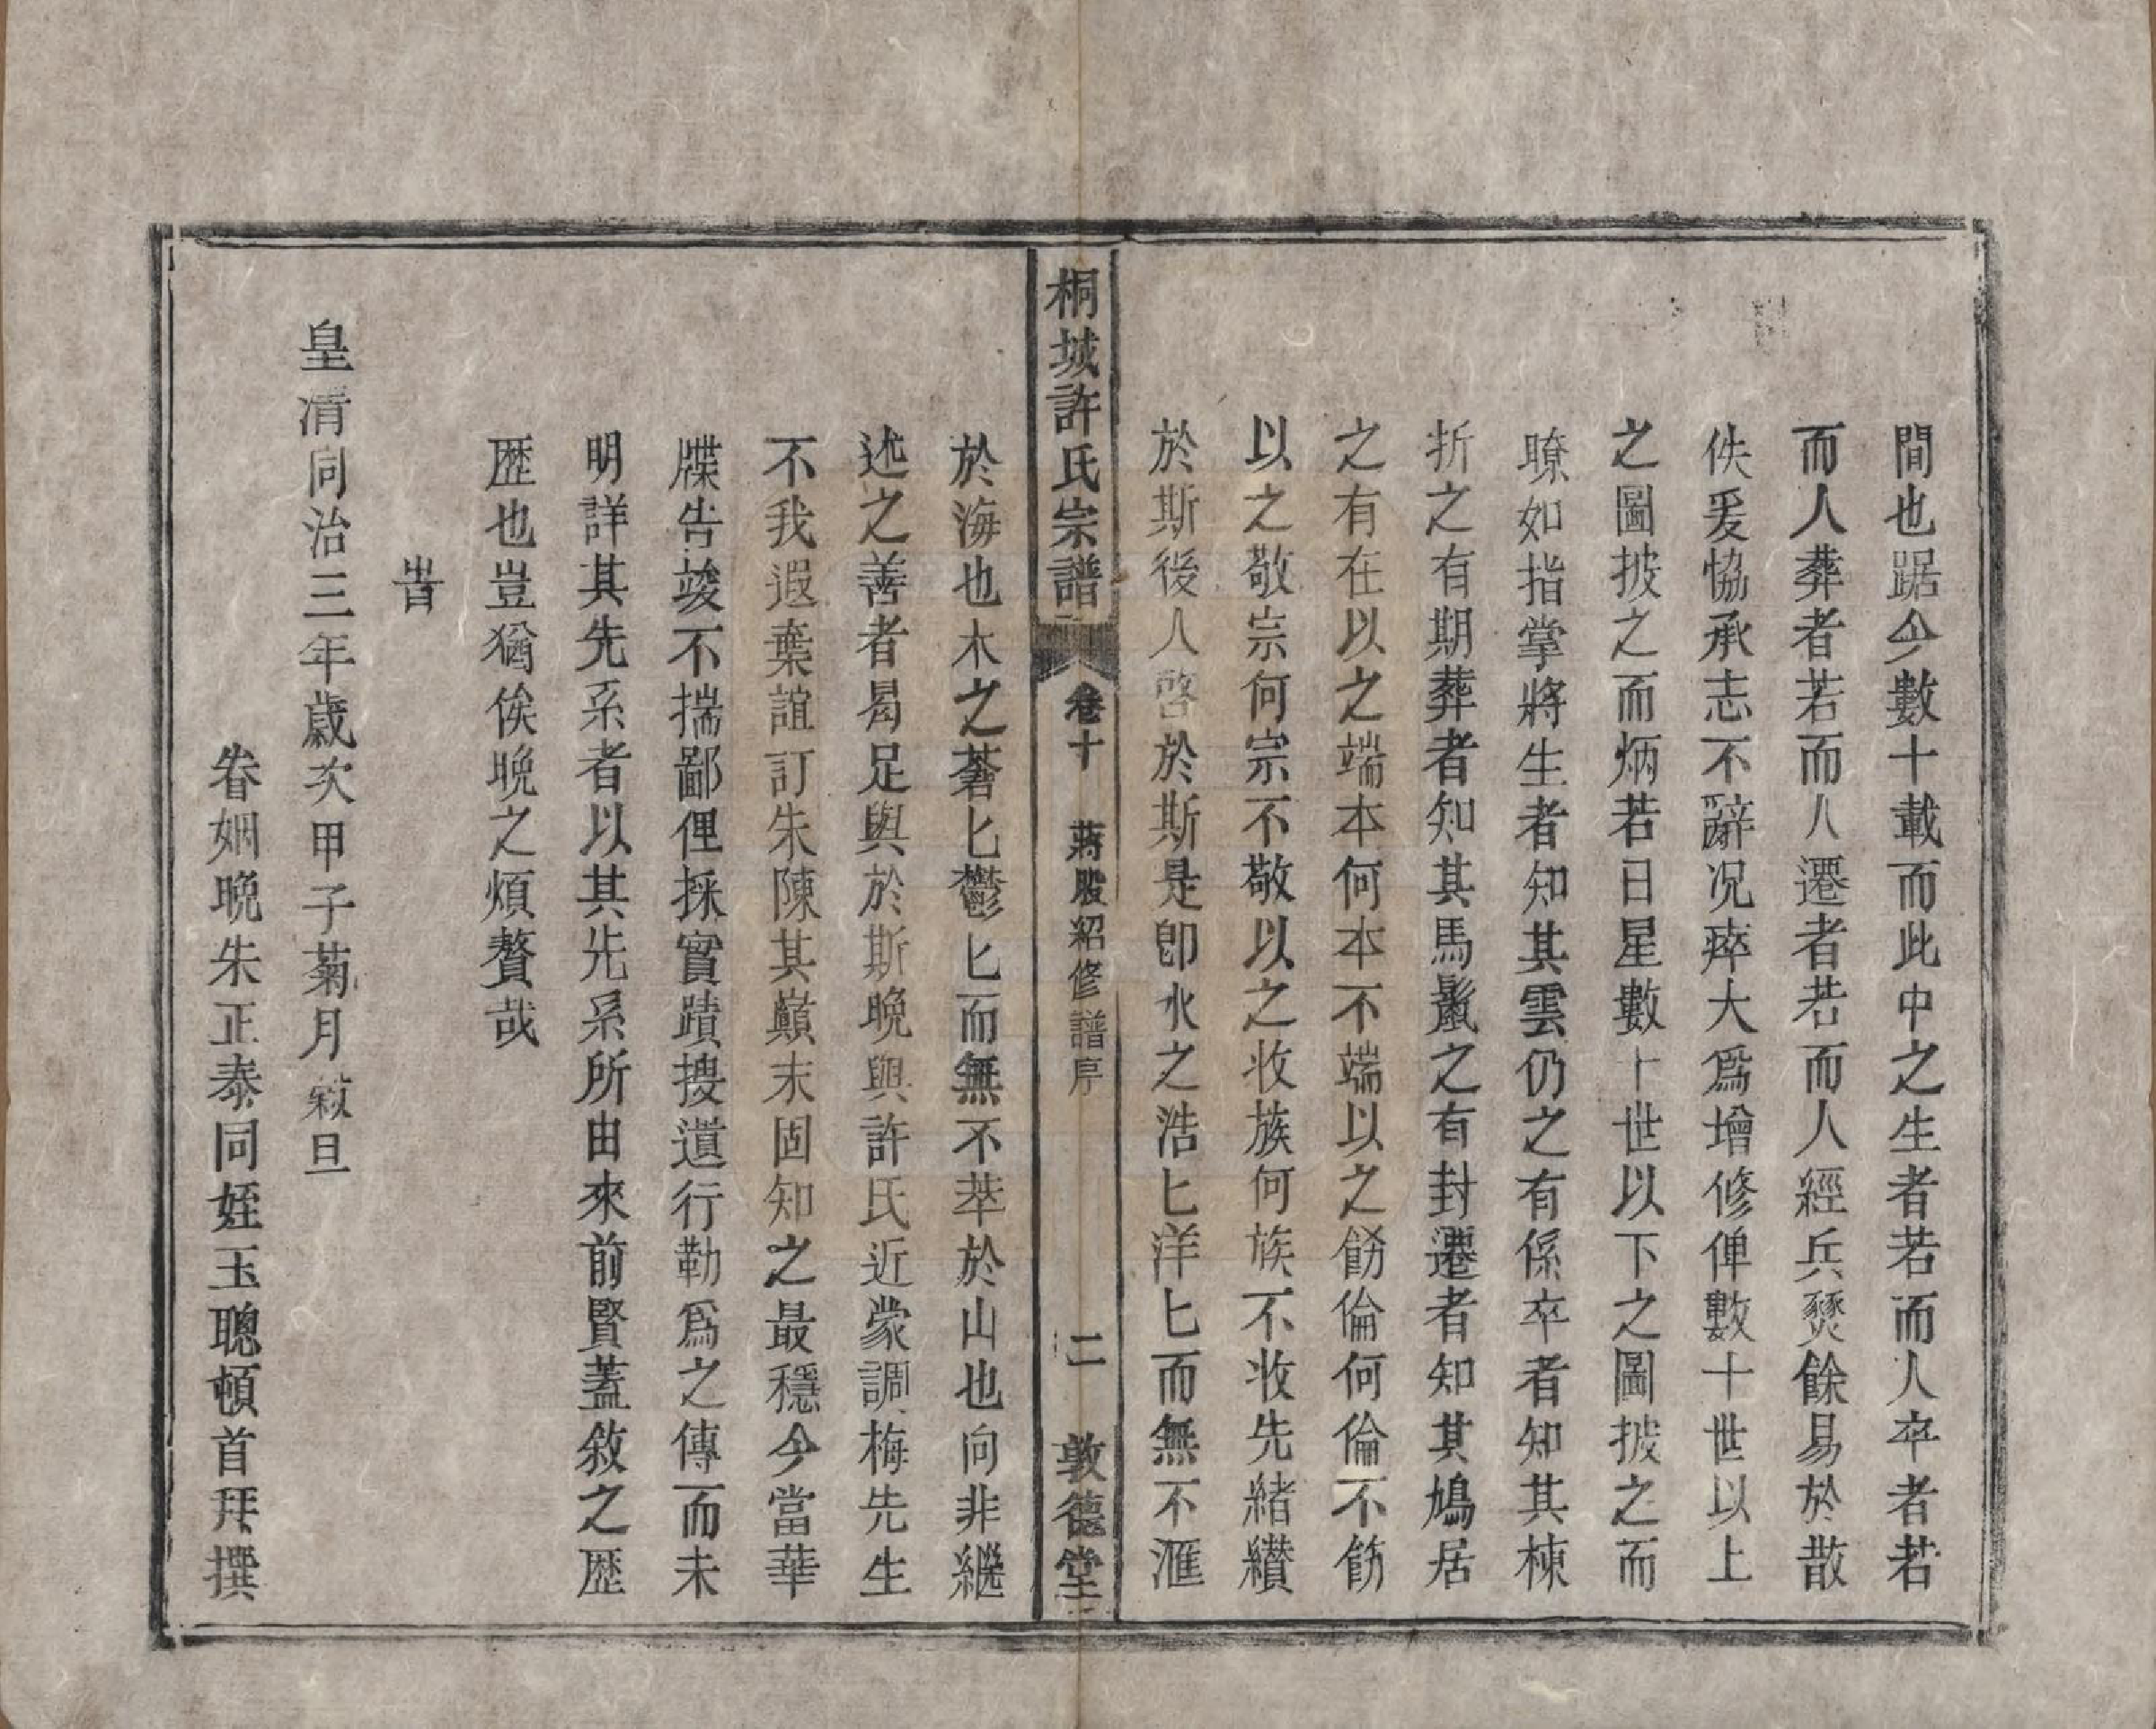 間也踞今數十載而此中之生者若而人卒者若
而人葬者若而人遷者若而人經兵燹餘易於散
佚爰恊承志不辭况瘁大爲增修俾數十世以上
之圖披之而炳若日星數十世以下之圖披之而
瞭如指掌將生者知其雲仍之有係卒者知其棟
折之有期葬者知其馬鬛之有封遷者知其鳩居
之有在以之端本何本不端以之餝倫何倫不飭
以之敬宗何宗不敬以之收族何族不收先緒纘
於斯後人啓於斯是卽水之浩匕洋匕而無不滙
桐城許氏宗譜 卷十 蔣股紹修譜序 二 敦德堂
於海也木之蒼匕鬱匕而無不萃於山也向非繼
述之善者曷足與於斯晚與許氏近蒙調梅先生
不我遐棄誼訂朱陳其巔末固知之最穩今當華
牒告竣不揣鄙俚採實蹟搜遺行勒爲之傳而未
明詳其先系者以其先系所由來前賢蓋敘之歴
歴也豈猶俟晚之煩贅哉
旹
皇凊同治三年歲次甲子菊月糓旦
眷姻晚朱正泰同姪玉聰頓首拜撰